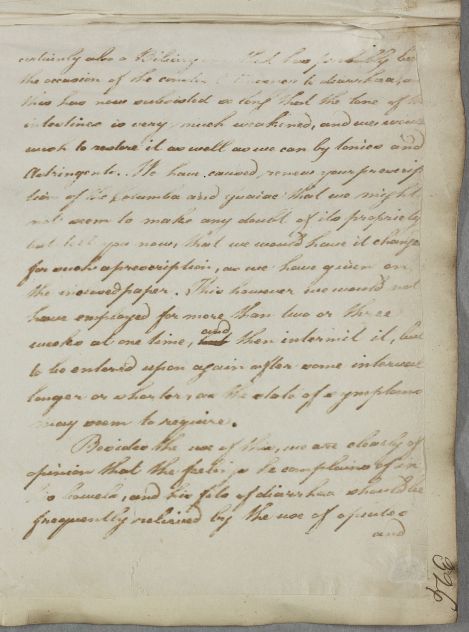 certainly also a Bilious has probably been
the occasion of the to diarrhœa,
this has now subsisted so long that the tone of the
intestines is very much weakened, and we would
wish to restore it as well as we can by tonics and
Astringents. We have caused, renew your prescrip
tion of the Columba and Guaiac that we might
not seem to make any doubt of its propriety
but tell you now, that we would have it changed
for such a prescription, as we have given on
the inclosed paper. This however we would not
have employed for more than two or three
weeks at one time, and then intermit it, but
to be entered upon again after some interval
longer or shorter, as the state of symptoms
may seem to require.
Besides the use of this, we are clearly of
opinion that the feeling he complains of in
his bowels, and his fits of diarrhœa should be
frequently relieved by the use of opiates
and
326